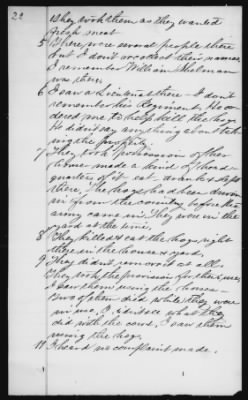 22
They took them as they wanted
fresh meat
5 There were several people there
but I don't recollect their names.
I remember William Skelman
was there.
6 I saw a Lieutenant there - I don't
remember his Regiment. He or
dered me to help kill the hogs
He didn't say anything about tak
ing the property.
7 They took possession of the
house made a kind of head
quarters of it eat drank & slept
there. The hogs had been driven
in from the country before the
army came in. They were in the
yard at the time.
8 They killed & eat the hogs right
there in the house & yard.
9 They didn't remove it at all.
They took the provision for their use.
I saw them using the horses -
Two of them died while they were
in use. I didn't see what they
did with the cows. I saw them
using the hogs.
11 I heard no complaint made.